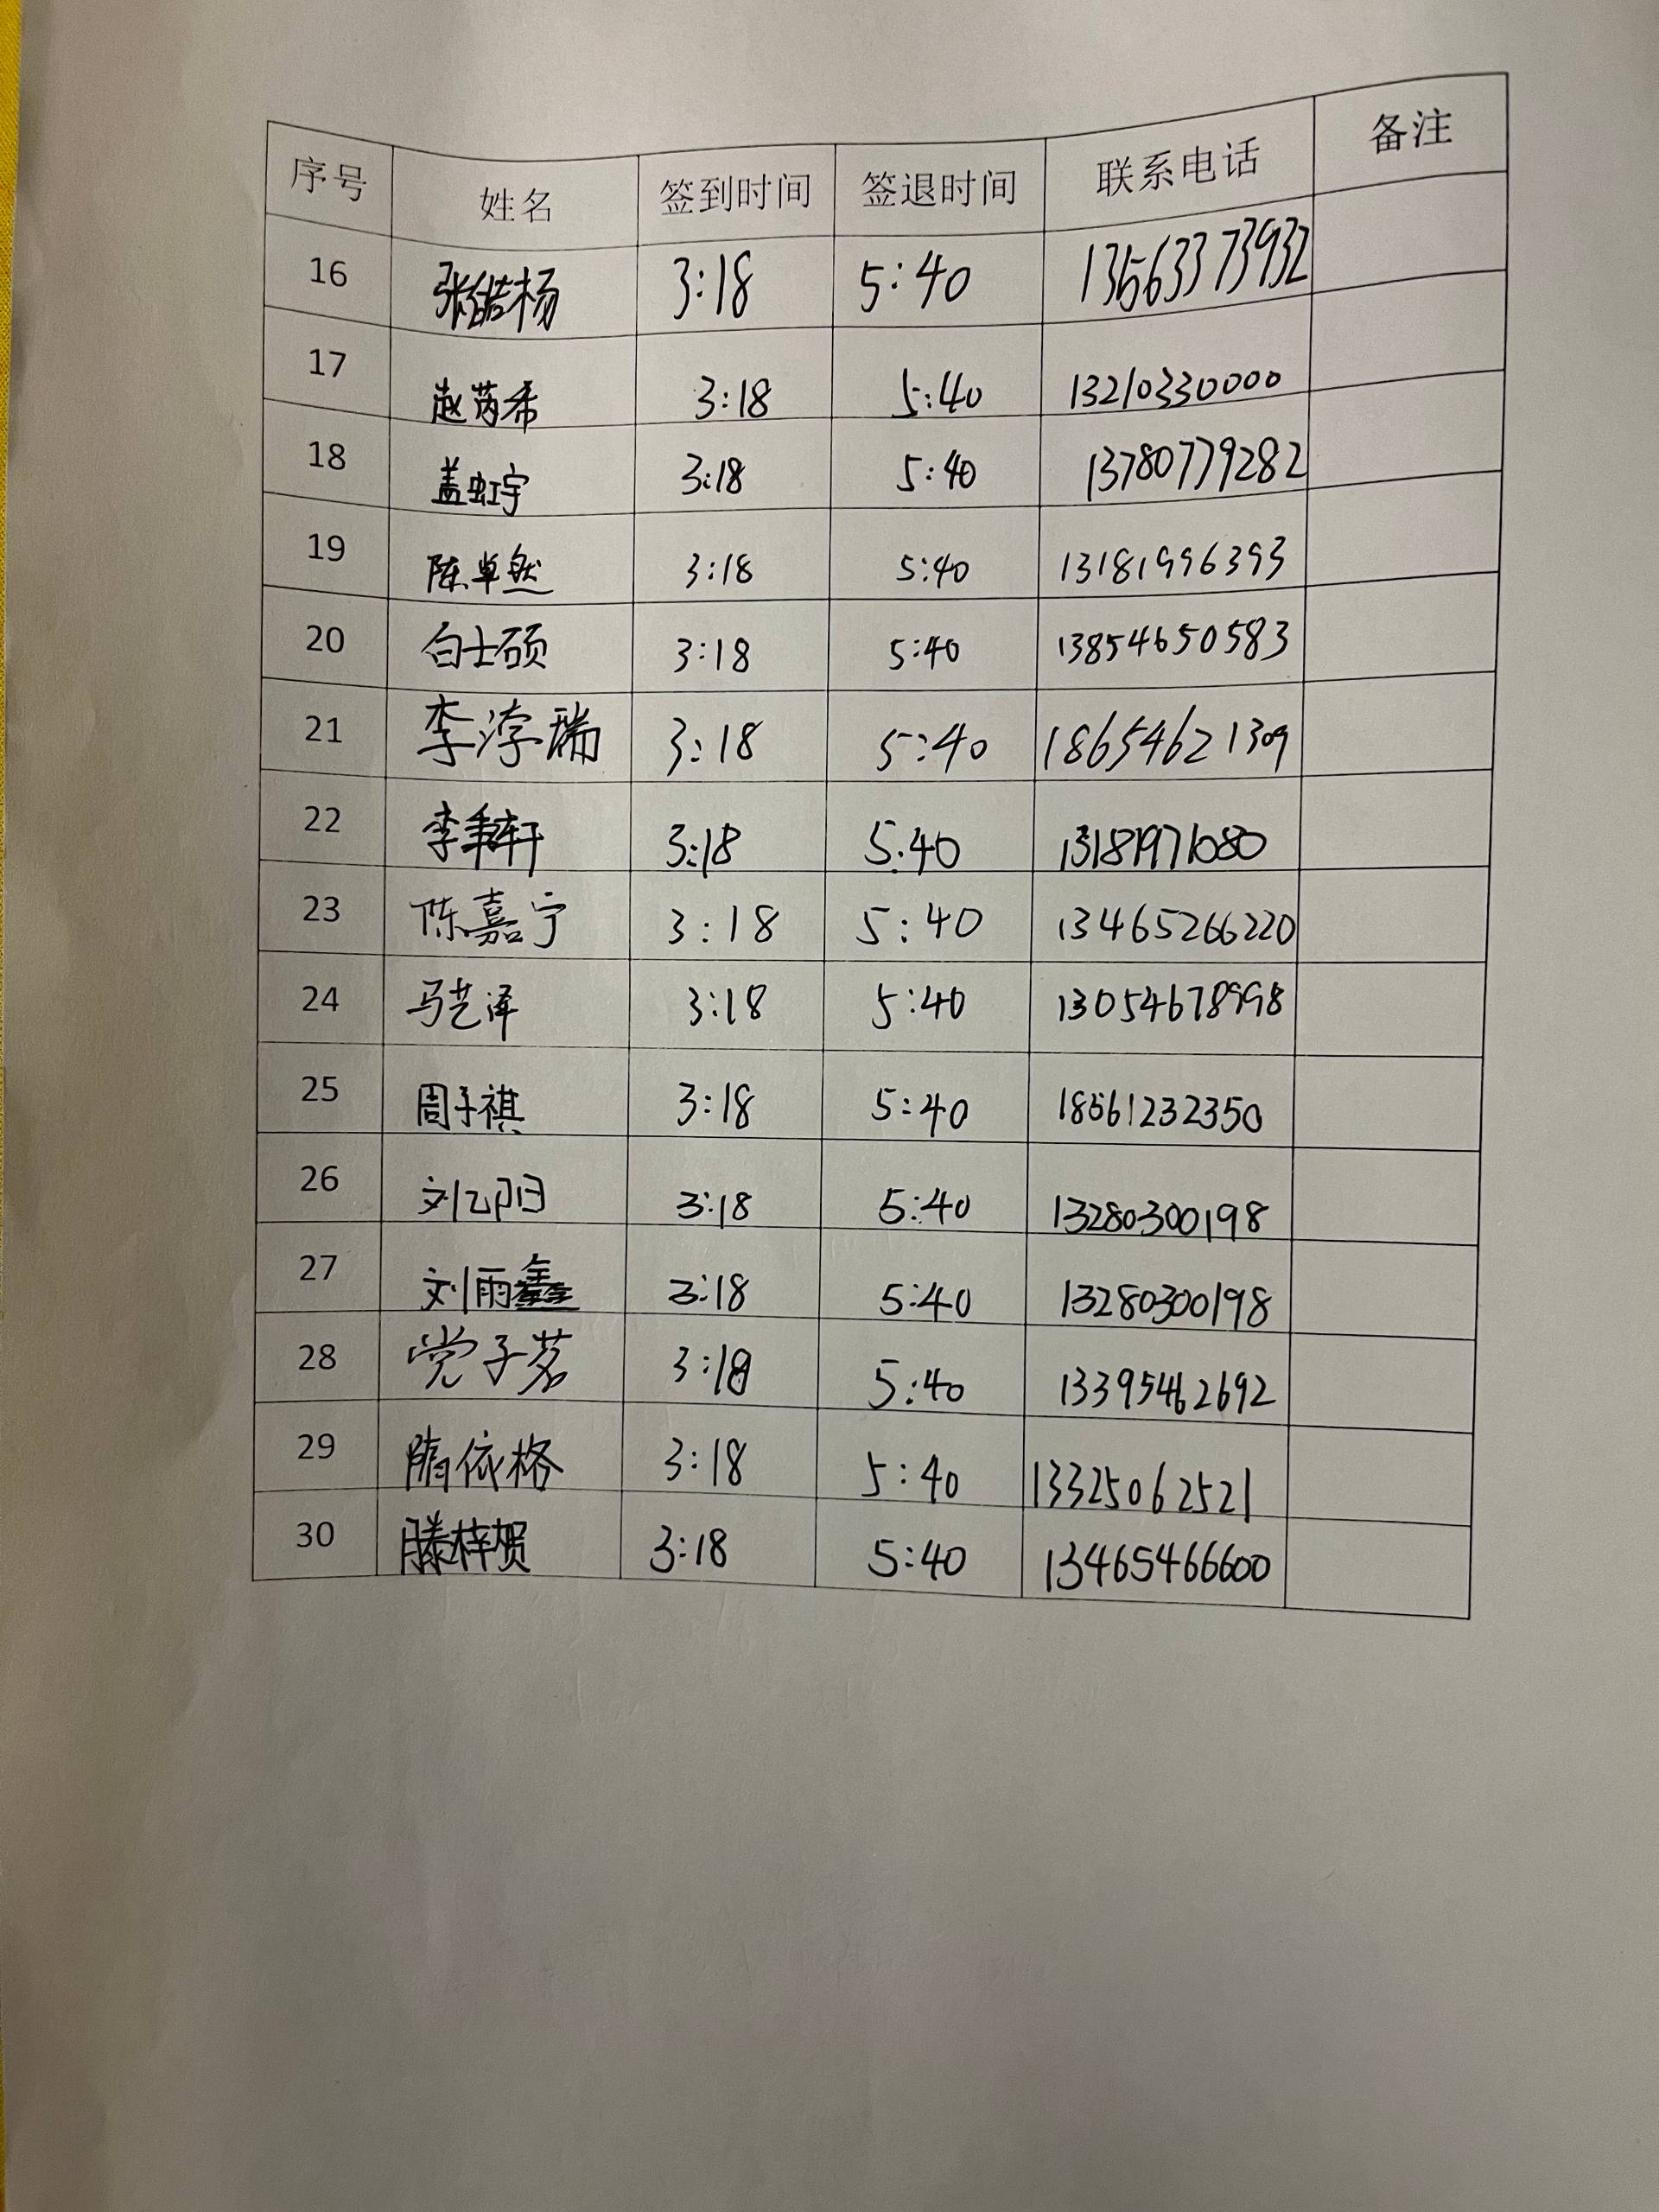 序号 姓名 签到时间 签退时间 联系电话 备注
16 张皓杨 3:18 5:40 13563373932
17 赵芮希 3:18 5:40 13210330000
18 盖虹宇 3:18 5:40 13780779282
19 陈卓然 3:18 5:40 13181996393
20 白士硕 3:18 5:40 13854650583
21 李浡瑞 3:18 5:40 18654621309
22 李秉轩 3:18 5.40 13181971080
23 陈嘉宁 3:18 5:40 13465266220
24 马艺泽 3:18 5:40 13054678998
25 周子祺 3:18 5:40 18561232350
26 刘乙阳 3:18 5:40 13280300198
27 刘雨鑫 3:18 5:40 13280300198
28 党子茗 3:18 5:40 13395462692
29 隋依格 3:18 5:40 13325062521
30 滕梓贺 3:18 5:40 13465466600